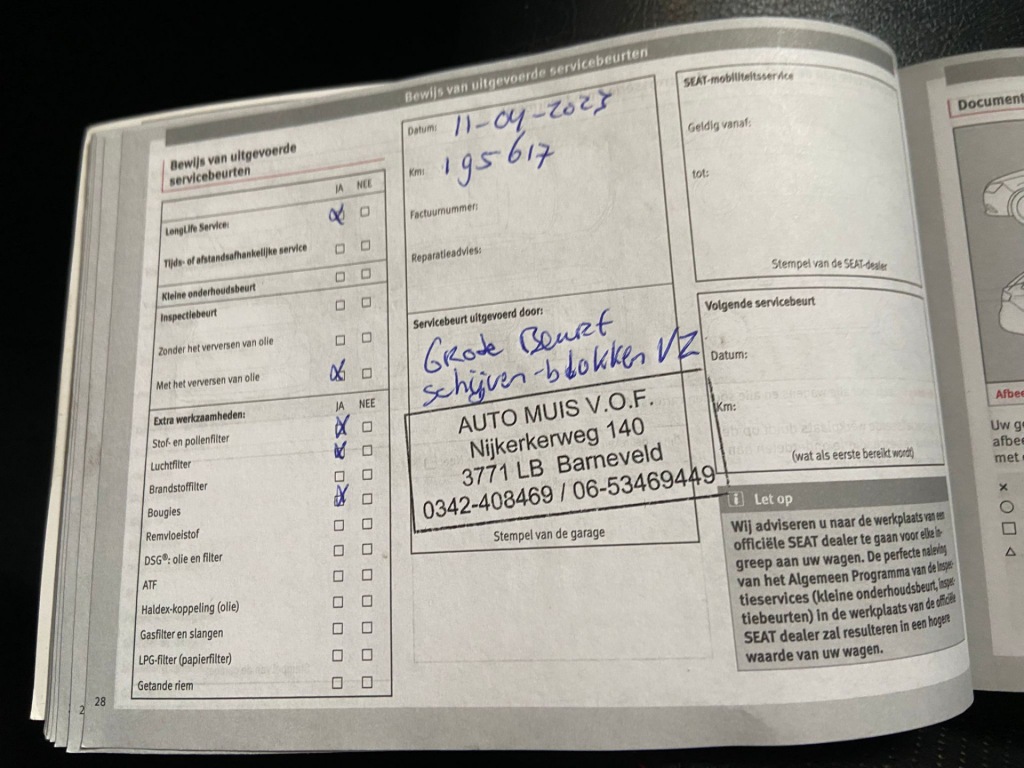 Bewijs van uitgevoerde servicebeurten
Bewijs van uitgevoerde
servicebeurten
JA NEE
LongLife Service:
Tijds- of afstandsafhankelijke service
Kleine onderhoudsbeurt
Inspectiebeurt
Zonder het verversen van olie
Met het verversen van olie
Extra werkzaamheden: JA NEE
Stof- en pollenfilter
Luchtfilter
Brandstoffilter
Bougies
Remvloeistof
DSG®: olie en filter
ATF
Haldex-koppeling (olie)
Gasfilter en slangen
LPG-filter (papierfilter)
Getande riem
28
2
Datum: 11-04-2023
Km: 195617
Factuurnummer:
Reparatieadvies:
Servicebeurt uitgevoerd door:
Grote Beurt
schijven-blokken VZ
AUTO MUIS V.O.F.
Nijkerkerweg 140
3771 LB Barneveld
0342-408469 / 06-53469449
Stempel van de garage
SEAT-mobiliteitsservice
Geldig vanaf:
tot:
Stempel van de SEAT-dealer
Volgende servicebeurt
Datum:
Km:
(wat als eerste bereikt wordt)
i Let op
Wij adviseren u naar de werkplaats van een
officiële SEAT dealer te gaan voor elke in-
greep aan uw wagen. De perfecte naleving
van het Algemeen Programma van de Inspec-
tieservices (kleine onderhoudsbeurt, Inspec-
tiebeurten) in de werkplaats van de officiële
SEAT dealer zal resulteren in een hogere
waarde van uw wagen.
Document
Afbee
Uw ge
afbee
met